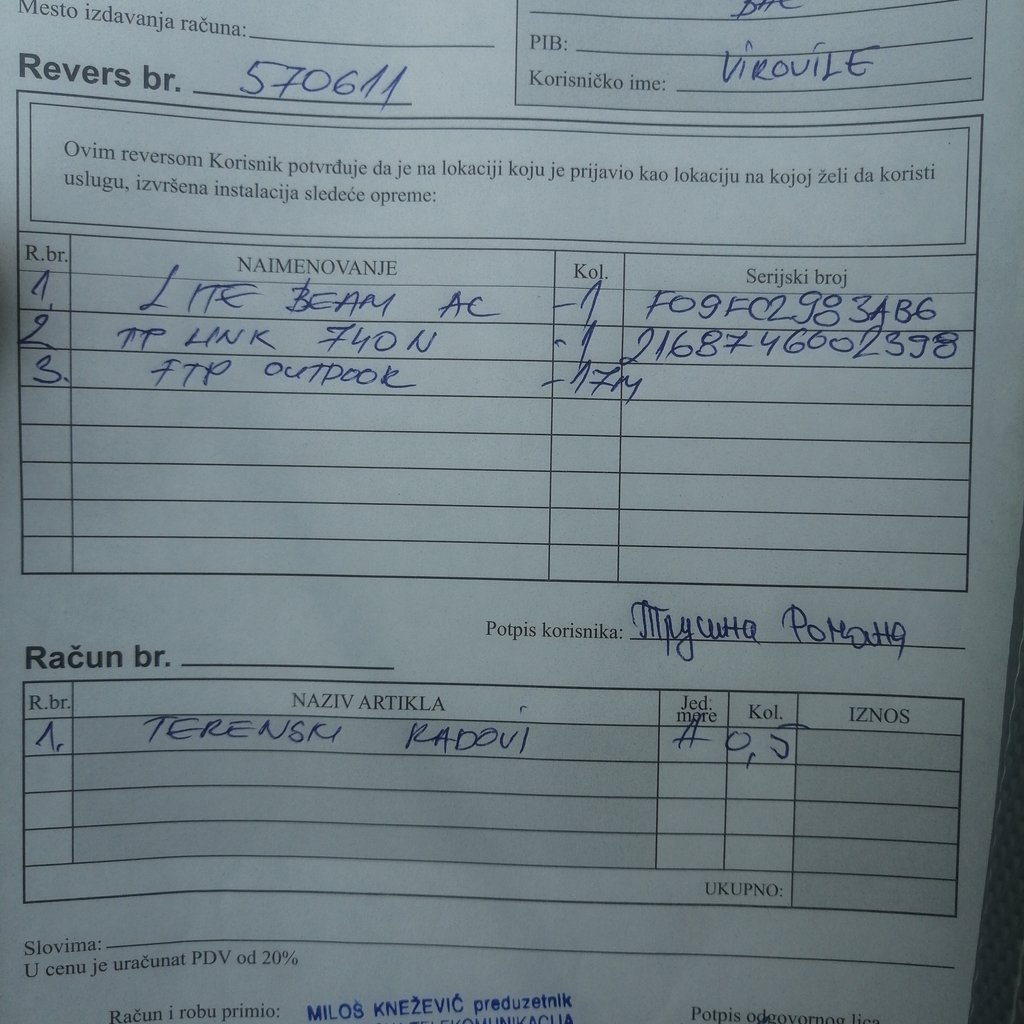 Mesto izdavanja računa:
PIB:
Korisničko ime: VIROVILE
Revers br. 570611
Ovim reversom Korisnik potvrđuje da je na lokaciji koju je prijavio kao lokaciju na kojoj želi da koristi
uslugu, izvršena instalacija sledeće opreme:
R.br. NAIMENOVANJE Kol. Serijski broj
1. LITE BEAM AC -1 F09FC2983AB6
2 TP LINK 740N -1 2168746002398
3. FTP OUTDOOR -17M
Potpis korisnika: Трусина Романа
Račun br.
R.br. NAZIV ARTIKLA Jed. mere Kol. IZNOS
1. TERENSKI RADOVI 0,5
UKUPNO:
Slovima:
U cenu je uračunat PDV od 20%
Račun i robu primio: MILOŠ KNEŽEVIĆ preduzetnik Potpis odgovornog lica
TELEKOMUNIKACIJA